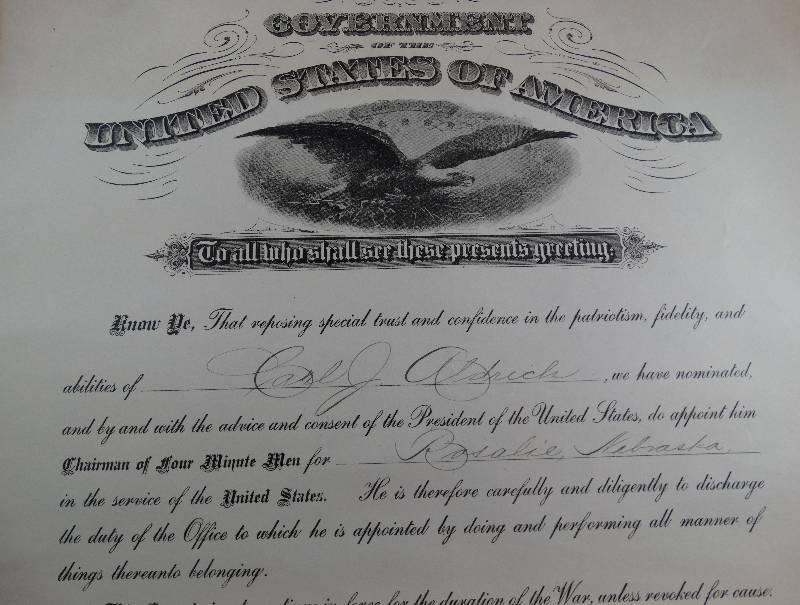 GOVERNMENT
OF THE
UNITED STATES OF AMERICA
To all who shall see these presents greeting.
Know Ye, That reposing special trust and confidence in the patriotism, fidelity, and
abilities of Carl J. Aldrich, we have nominated,
and by and with the advice and consent of the President of the United States, do appoint him
Chairman of Four Minute Men for Rosalie, Nebraska.
in the service of the United States. He is therefore carefully and diligently to discharge
the duty of the Office to which he is appointed by doing and performing all manner of
things thereunto belonging.
in force for the duration of the War, unless revoked for cause.